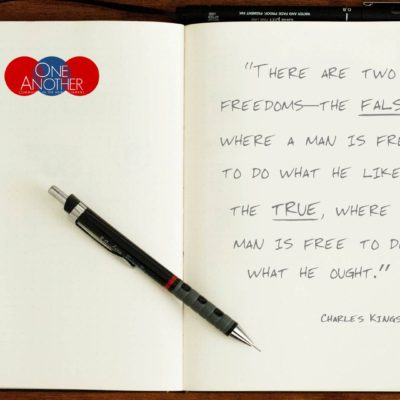 ONE
ANOTHER
"THERE ARE TWO
FREEDOMS—THE FALS
WHERE A MAN IS FRE
TO DO WHAT HE LIKE
THE TRUE, WHERE
MAN IS FREE TO DO
WHAT HE OUGHT."
CHARLES KINGS